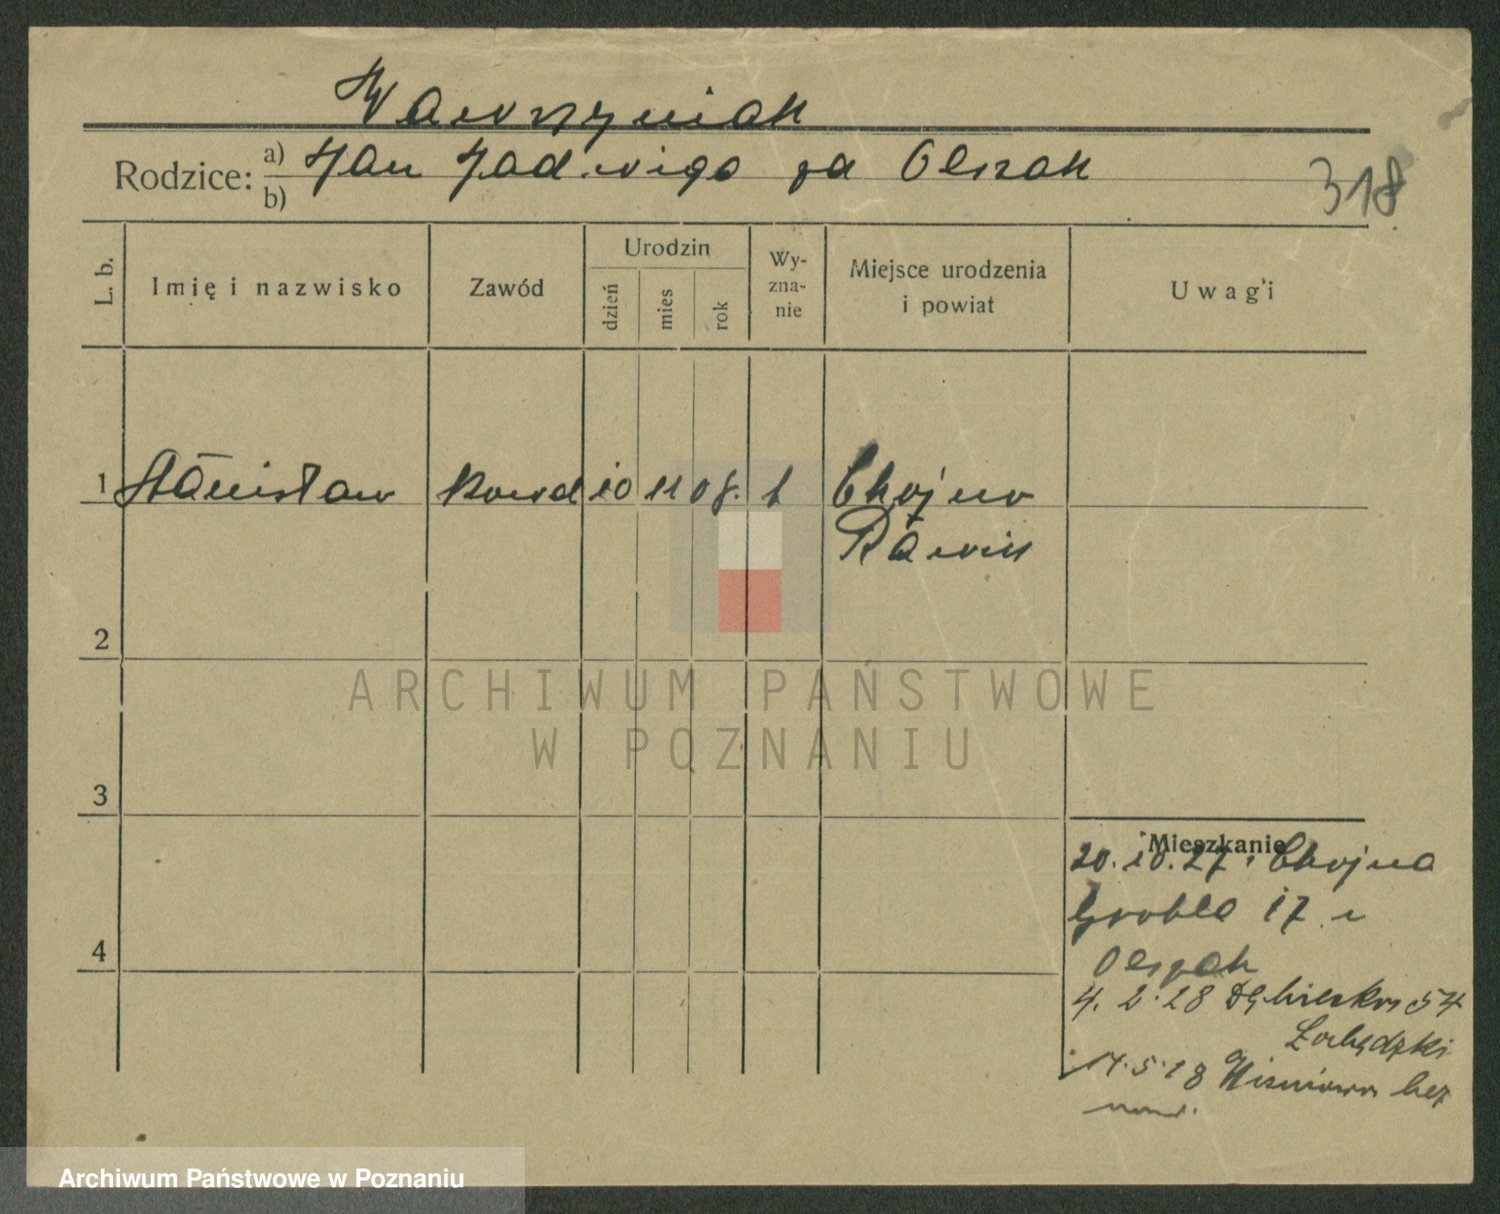 Wawrzyniak
Rodzice: a) Jan Jadwiga za Olszak
b)
318
L. b.
Imię i nazwisko
Zawód
Urodzin
dzień
mies
rok
Wy-
zna-
nie
Miejsce urodzenia
i powiat
Uwagi
1 Stanisław kowal 10 11 08. k Chojno
Rawicz
2
ARCHIWUM PAŃSTWOWE
W POZNANIU
3
Mieszkanie
20.10.27. Chojna
Grobla 17
Olszak
4
4. 2. 28 Dębieckas 54
Łabędzki
14.5.28 Wiśniowa bez
num.
Archiwum Państwowe w Poznaniu